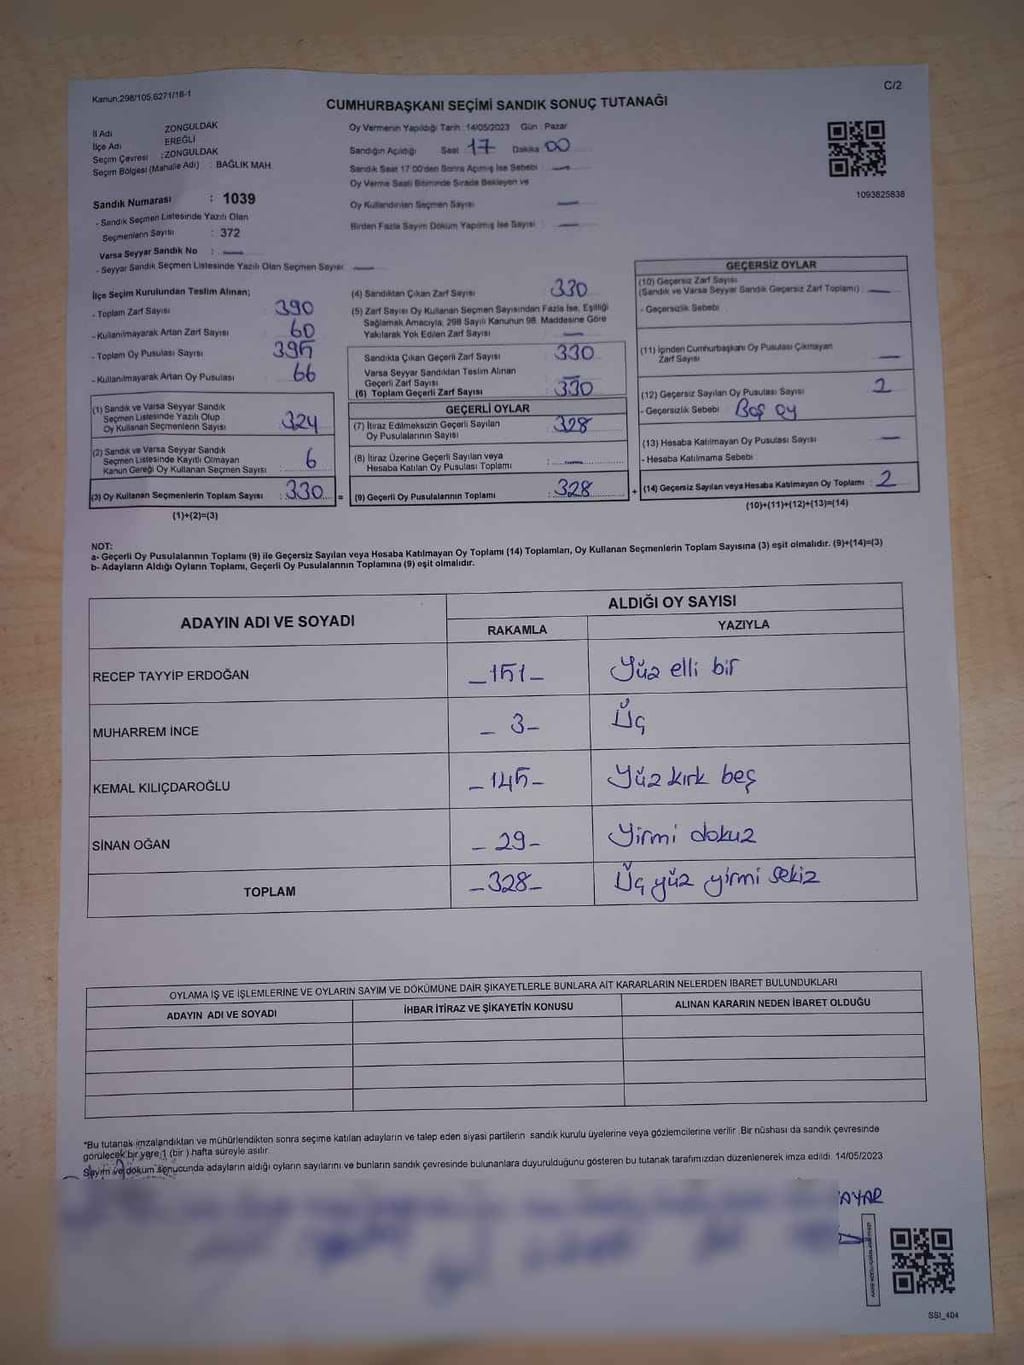 Kanun;298/105,6271/18-1
C/2
CUMHURBAŞKANI SEÇİMİ SANDIK SONUÇ TUTANAĞI
İl Adı ZONGULDAK
İlçe Adı EREĞLİ
Seçim Çevresi :ZONGULDAK
Seçim Bölgesi (Mahalle Adı) : BAĞLIK MAH.
Oy Vermenin Yapıldığı Tarih :14/05/2023 Gün : Pazar
Sandığın Açıldığı Saat 17 Dakika 00
Sandık Saat 17:00'den Sonra Açılmış İse Sebebi —
Oy Verme Saati Bitiminde Sırada Bekleyen ve
Oy Kullandırılan Seçmen Sayısı —
Birden Fazla Sayım Döküm Yapılmış İse Sayısı —
1093825838
Sandık Numarası : 1039
- Sandık Seçmen Listesinde Yazılı Olan
Seçmenlerin Sayısı : 372
Varsa Seyyar Sandık No : —
- Seyyar Sandık Seçmen Listesinde Yazılı Olan Seçmen Sayısı: —
İlçe Seçim Kurulundan Teslim Alınan;
- Toplam Zarf Sayısı 390
- Kullanılmayarak Artan Zarf Sayısı 60
- Toplam Oy Pusulası Sayısı 395
- Kullanılmayarak Artan Oy Pusulası 66
(1) Sandık ve Varsa Seyyar Sandık
Seçmen Listesinde Yazılı Olup
Oy Kullanan Seçmenlerin Sayısı : 324
(2) Sandık ve Varsa Seyyar Sandık
Seçmen Listesinde Kayıtlı Olmayan
Kanun Gereği Oy Kullanan Seçmen Sayısı : 6
(3) Oy Kullanan Seçmenlerin Toplam Sayısı : 330
(1)+(2)=(3)
(4) Sandıktan Çıkan Zarf Sayısı 330
(5) Zarf Sayısı Oy Kullanan Seçmen Sayısından Fazla İse, Eşitliği
Sağlamak Amacıyla, 298 Sayılı Kanunun 98. Maddesine Göre
Yakılarak Yok Edilen Zarf Sayısı —
Sandıkta Çıkan Geçerli Zarf Sayısı 330
Varsa Seyyar Sandıktan Teslim Alınan
Geçerli Zarf Sayısı —
(6) Toplam Geçerli Zarf Sayısı 330
GEÇERLİ OYLAR
(7) İtiraz Edilmeksizin Geçerli Sayılan
Oy Pusulalarının Sayısı : 328
(8) İtiraz Üzerine Geçerli Sayılan veya
Hesaba Katılan Oy Pusulası Toplamı : —
= (9) Geçerli Oy Pusulalarının Toplamı : 328
GEÇERSİZ OYLAR
(10) Geçersiz Zarf Sayısı
(Sandık ve Varsa Seyyar Sandık Geçersiz Zarf Toplamı) : —
- Geçersizlik Sebebi
(11) İçinden Cumhurbaşkanı Oy Pusulası Çıkmayan
Zarf Sayısı —
(12) Geçersiz Sayılan Oy Pusulası Sayısı 2
- Geçersizlik Sebebi Boş oy
(13) Hesaba Katılmayan Oy Pusulası Sayısı —
- Hesaba Katılmama Sebebi
+ (14) Geçersiz Sayılan veya Hesaba Katılmayan Oy Toplamı : 2
(10)+(11)+(12)+(13)=(14)
NOT:
a- Geçerli Oy Pusulalarının Toplamı (9) ile Geçersiz Sayılan veya Hesaba Katılmayan Oy Toplamı (14) Toplamları, Oy Kullanan Seçmenlerin Toplam Sayısına (3) eşit olmalıdır. (9)+(14)=(3)
b- Adayların Aldığı Oyların Toplamı, Geçerli Oy Pusulalarının Toplamına (9) eşit olmalıdır.
ADAYIN ADI VE SOYADI ALDIĞI OY SAYISI
RAKAMLA YAZIYLA
RECEP TAYYİP ERDOĞAN –151– Yüz elli bir
MUHARREM İNCE – 3– Üç
KEMAL KILIÇDAROĞLU –145– Yüz kırk beş
SİNAN OĞAN – 29– Yirmi dokuz
TOPLAM –328– Üç yüz yirmi sekiz
OYLAMA İŞ VE İŞLEMLERİNE VE OYLARIN SAYIM VE DÖKÜMÜNE DAİR ŞİKAYETLERLE BUNLARA AİT KARARLARIN NELERDEN İBARET BULUNDUKLARI
ADAYIN ADI VE SOYADI İHBAR İTİRAZ VE ŞİKAYETİN KONUSU ALINAN KARARIN NEDEN İBARET OLDUĞU
*Bu tutanak imzalandıktan ve mühürlendikten sonra seçime katılan adayların ve talep eden siyasi partilerin sandık kurulu üyelerine veya gözlemcilerine verilir .Bir nüshası da sandık çevresinde
görülecek bir yere 1 (bir ) hafta süreyle asılır.
Sayım ve döküm sonucunda adayların aldığı oyların sayılarını ve bunların sandık çevresinde bulunanlara duyurulduğunu gösteren bu tutanak tarafımızdan düzenlenerek imza edildi. 14/05/2023
AYAR
SSI_404